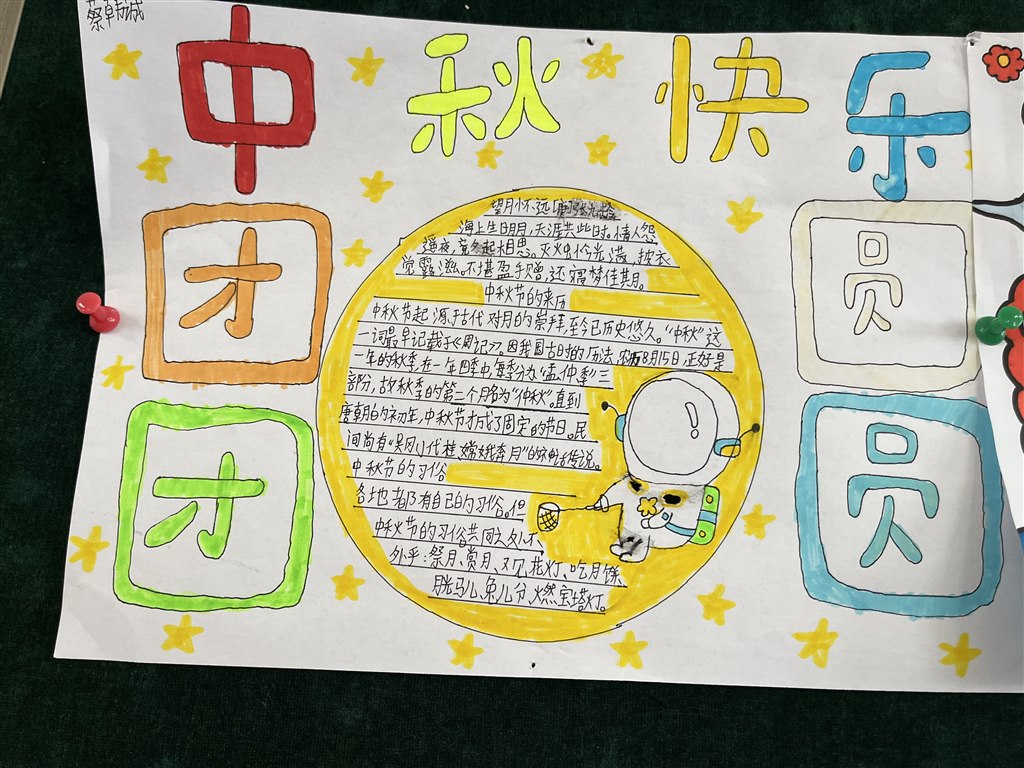 蔡韩诚
中秋快乐
团
圆
团
圆
望月怀远 [唐] 张九龄
海上生明月,天涯共此时。情人怨
遥夜,竟夕起相思。灭烛怜光满,披衣
觉露滋。不堪盈手赠,还寝梦佳期。
中秋节的来历
中秋节起源于古代对月的崇拜,至今已历史悠久。“中秋”这
一词最早记载于《周记》。因我国古时的历法,农历8月15日正好是
一年的秋季,在一年四季中,每季分为“孟、仲、季”三
部阶,故秋季的第二个月名为“仲秋”。直到
唐朝的初年,中秋节才成了固定的节日。民
间尚有“吴刚代桂,嫦娥奔月”的神话传说。
中秋节的习俗
各地都有自己的习俗。但
中秋节的习俗共同之处不
外乎:祭月、赏月、花灯、吃月饼、
兔儿爷、燃宝塔灯。